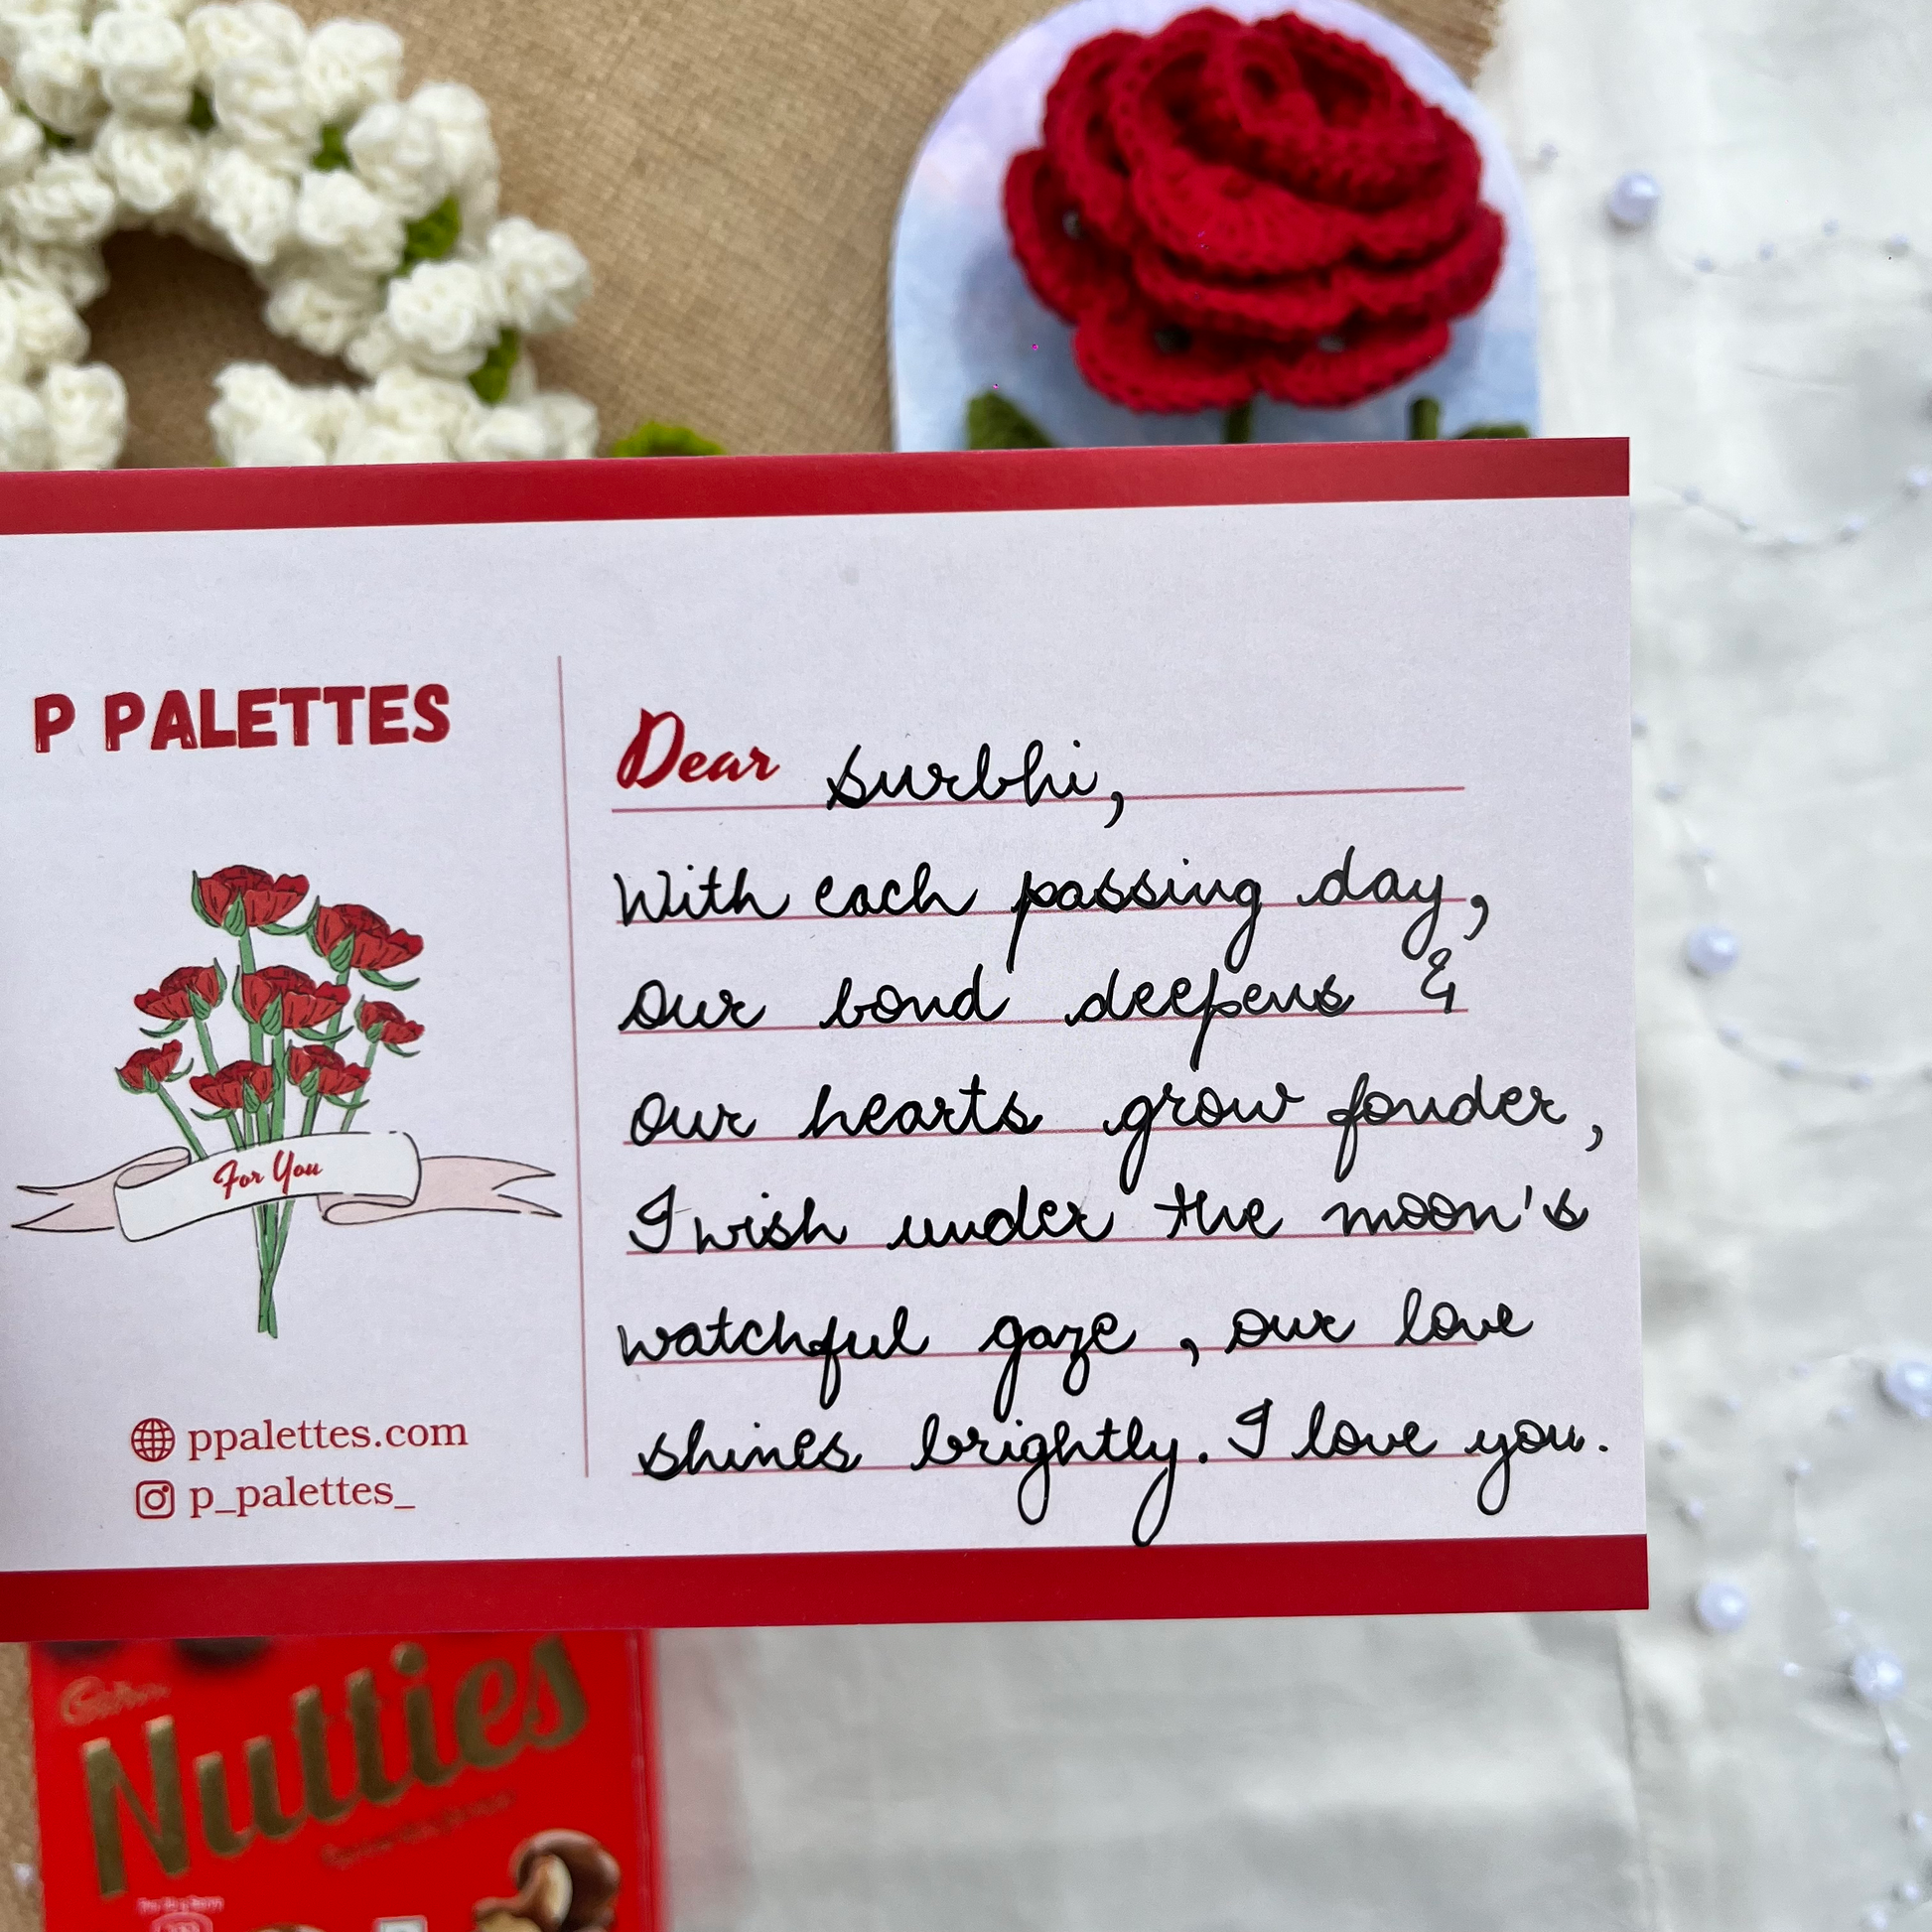 P PALETTES
For You
ppalettes.com
p_palettes_
Dear surbhi,
With each passing day,
our bond deepens &
our hearts grow fonder,
I wish under the moon's
watchful gaze, our love
shines brightly. I love you.
Nutties